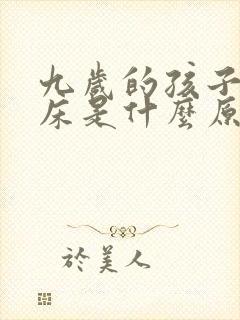 九歲的孩子
床是什麼原
於美人